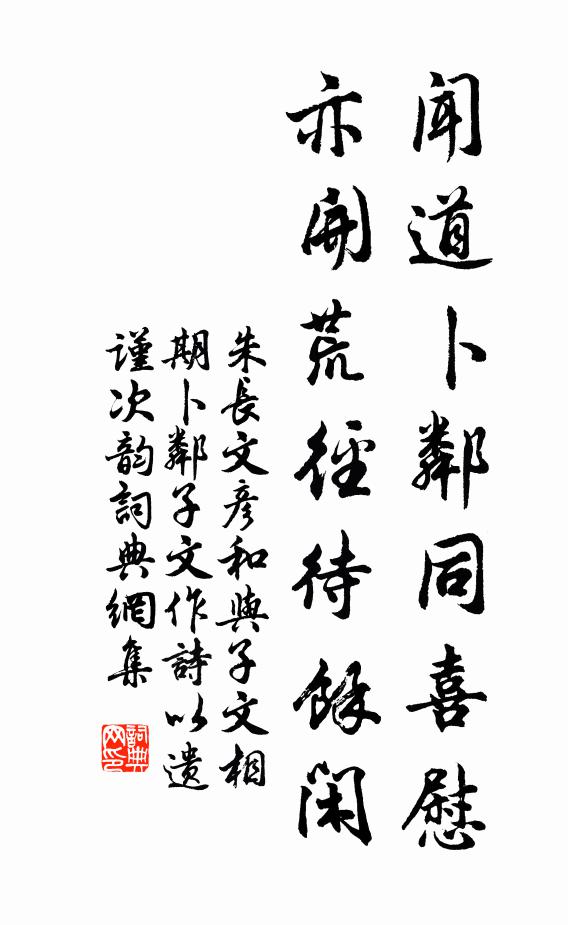 闻道卜鄰同喜慰
亦開荒徑待餘闲
朱長文彦和與子文相
期卜鄰子文作詩以遗
謹次韵詞典網集
詞典网印